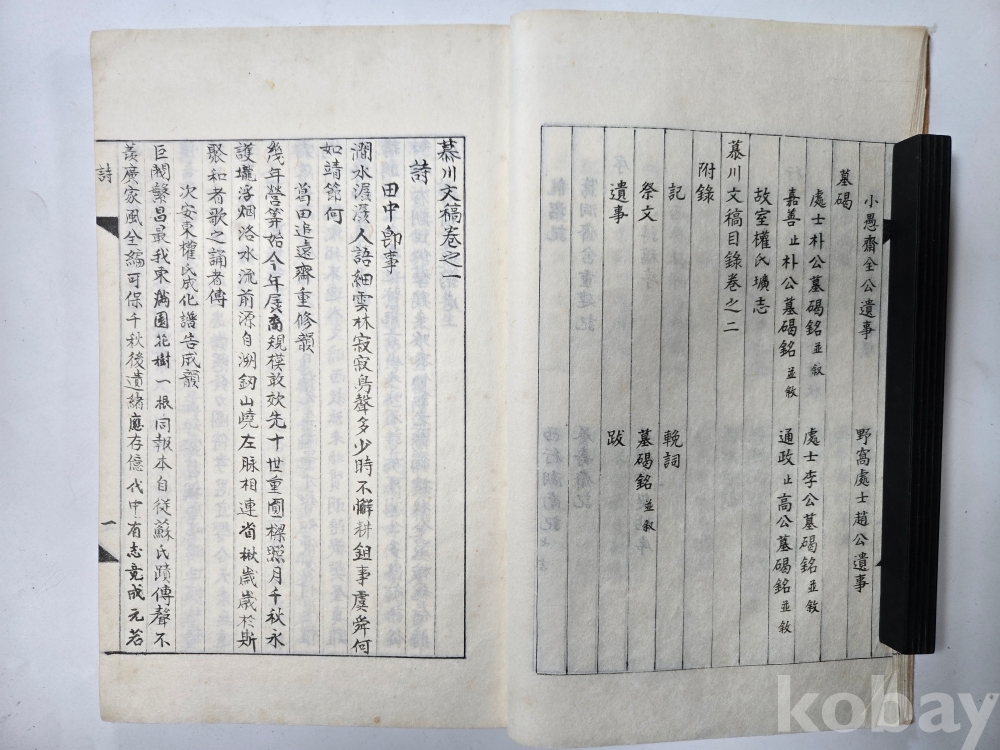 小愚齋全公遺事 野窩處士趙公遺事
墓碣
處士朴公墓碣銘並敘 處士李公墓碣銘並敘
嘉善止朴公墓碣銘並敘 通政止高公墓碣銘並敘
故室權氏壙志
慕川文稿目錄卷之二
附錄
記 輓詞
祭文 墓碣銘並敘
遺事 跋
慕川文稿卷之一
詩
田中卽事
澗水潺潺人語細雲林寂寂鳥聲多少時不懈耕鉏事虞舜何
如靖節何
當田追遠齋重修韻
幾年營筭始今年展裔規模敢效先十世重圓樑照月千秋永
護壠浮烟洛水流前源自溯釣山嶢左脉相連省楸歲歲於斯
聚和者歌之誦者傳
次安東權氏成化譜告成韻
巨閥繁昌最我東滿園花樹一根同報本自從蘇氏蹟傳聲不
羨廣家風全編可保千秋後遺緖應存億代中有志竟成元若
詩
一
kobay